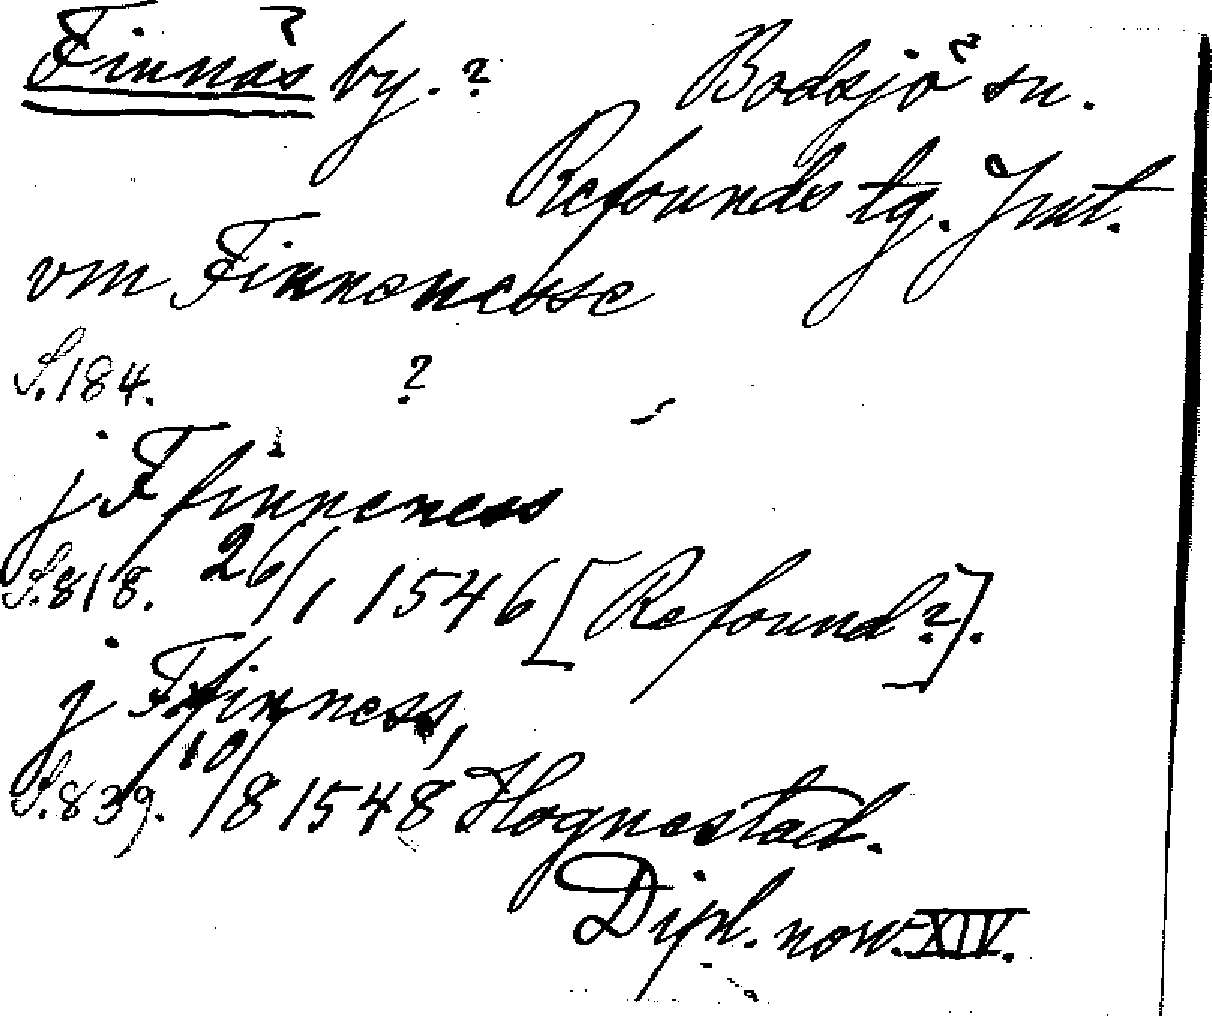 Finnäs by.? Bodsjö sn.
Refsunds tg. Jmt.
vm Finnonesse
S.184. ?
j Ffinneness
S.818. 26/1 1546 [Refsund?].
j Ffinness,
S.839. 10/8 1548 Hognestad.
Dipl. norv. XIV.